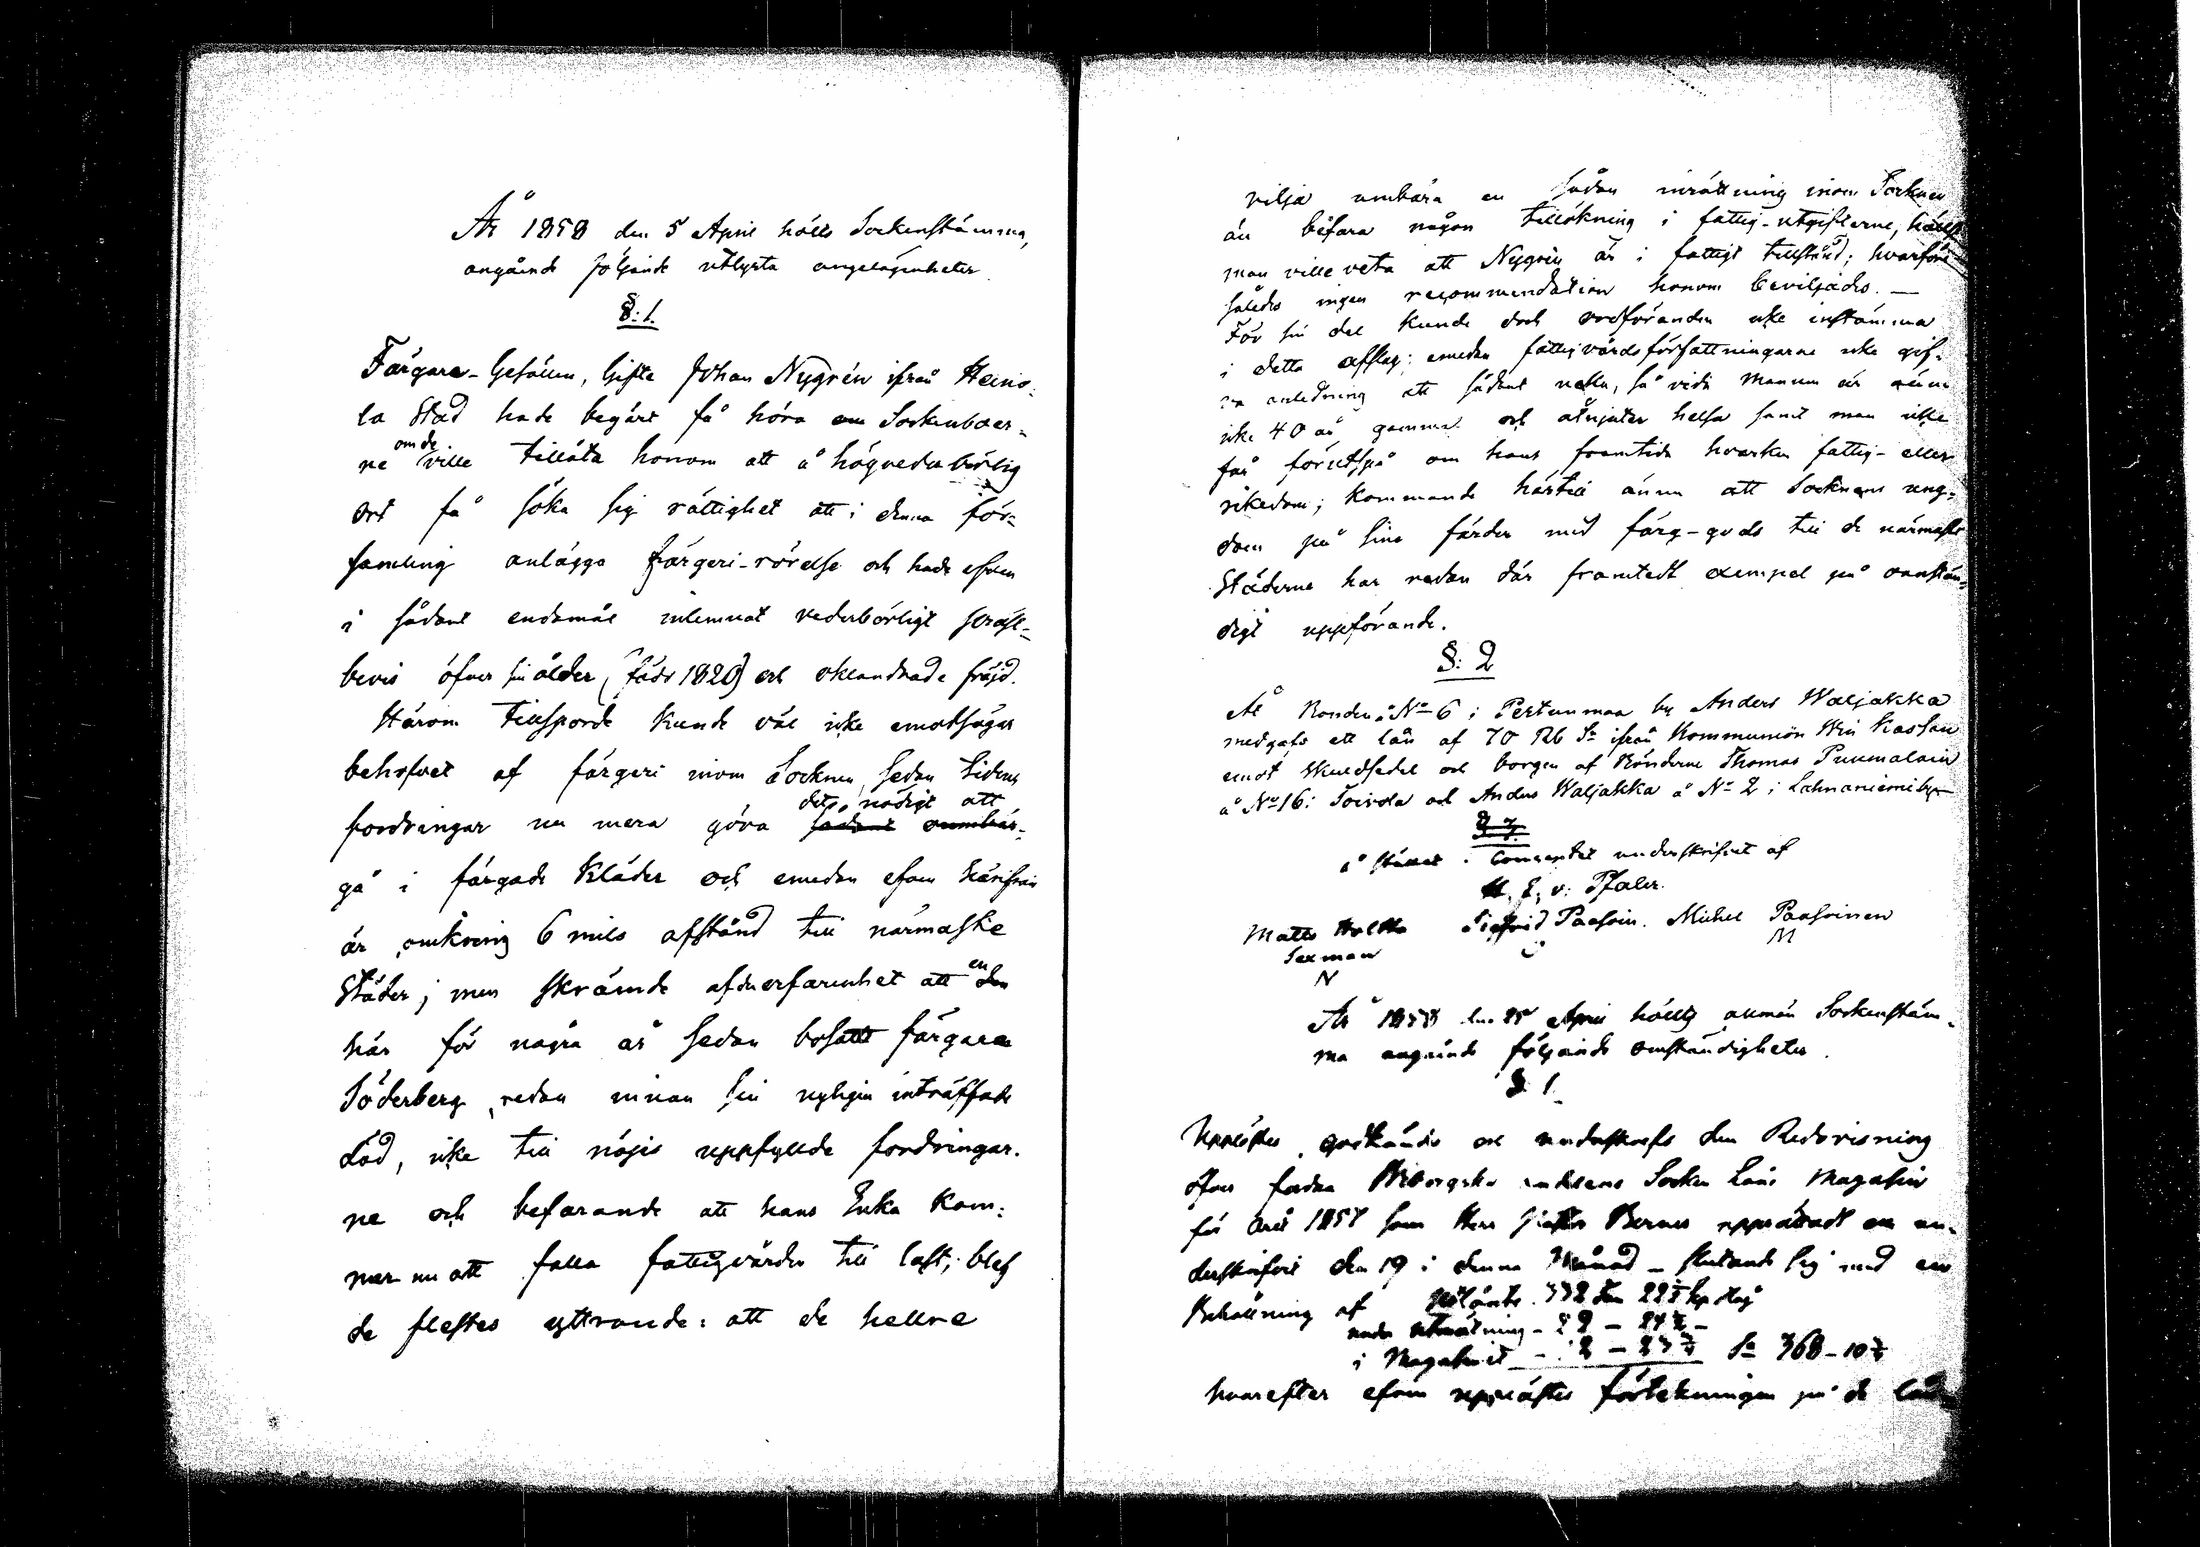 År 1858 den 5 April hölls Sockenstämma,
angående följande utlysta angelägenheter.
§: 1.
Färgare-Gesällen, Gifte Johan Nygrén ifrån Heino-
la Stad hade begärt få höra om Sockenboer-
ne om de ville tillåta honom att å högvederbörlig
ort få söka sig rättighet att i denna för-
samling anlägga färgeri-rörelse och hade efven
i sådant endamål inlemnat vederbörligt präst-
bevis öfver sin ålder (född 1820) och oklandrade fräjd.
Härom tillsporde kunde väl icke emotsägas
behofvet af färgeri inom Socknen, sedan tidens
fordringar nu mera göra det nödigt att
gå i färgade Kläder och emedan efven härifrån
är omkring 6 mils afstånd till närmaste
Städer; men skrämde af den erfarenhet att en
här för några år sedan bosatt färgare
Söderberg redan innan sin nyligen inträffade
död, icke till nöjes uppfyllde fordringar-
ne och befarande att hans Enka kom-
mer nu att falla fattigvården till last, blef
de flestes yttrande: att de hellre
vilja umbära en sådan inrättning inom Socknen
än befara någon tillökning i fattig-utgifterne, hälst
man ville veta att Nygrén är i fattigt tillstånd; hvarföre
således ingen recommendation honom beviljades. —
För sin del kunde dock ordföranden icke instämma
i detta afslag; emedan fattigvårdsförfattningarne icke gif-
va anledning att sådant neka, så vida Mannen är ännu
icke 40 år gammal och åtnjuter helsa samt man icke
får förutspå om hans framtida hvarken fattig- eller
rikedom; kommande härtill ännu att Socknens ung-
dom på sina färder med färg-gods till de närmaste
Städerne har redan där framtedt exempel på oanstän-
digt uppförande.
§: 2
Åt Bonden å No 6 i Pertunmaa by Anders Waljakka
medgafs ett lån af 70 Rb Sr ifrån Kommunion Win Kassan
emot Skuldsedel och borgen af Bönderne Thomas Puumalain
å No 16 i Toivola och Anders Waljakka å No 2 i Lahnaniemi by
å stället i Conceptet underskrifvit af
H. E. v: Pfaler.
Matts Holtta Sigfrid Paasoin. Michel Paasoinen
Sexman M
N
År 1858 den 25 April hölls allmän Sockenstäm-
ma angående följande omständigheter.
§ 1.
Upplästes, godkändes och underskrefs den Redovisning
öfver fordna Wiborgska andelens Socken Låne Magasin
för året 1857 som Herr Bernes upprättadt och un-
derskrifvit den 19 i denna Månad – slutande sig med en
Behållning af
under utmätning
i Magasinet Sa 368 – 10
hvarefter efven upplästes förtekningen på de